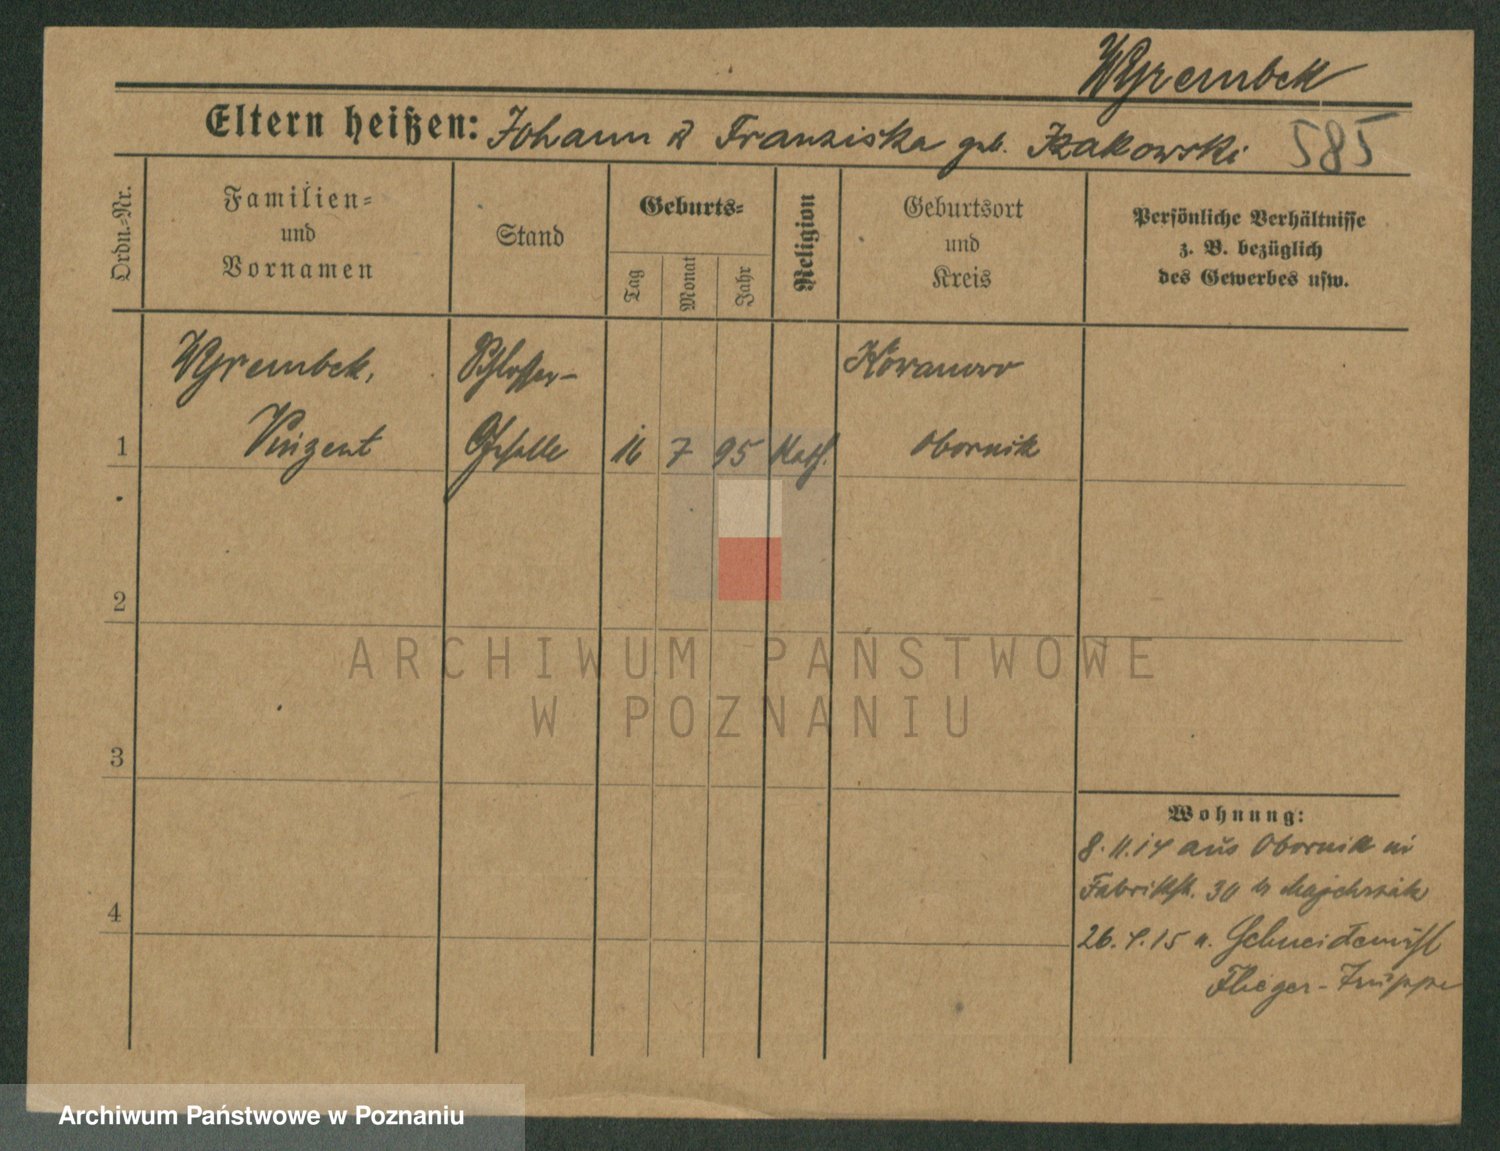 Wyrembek
Eltern heißen: Johann & Franziska geb. Izakowski 585
Ordn.-Nr.
Familien-
und
Vornamen
Stand
Geburts-
Tag
Monat
Jahr
Religion
Geburtsort
und
Kreis
Persönliche Verhältnisse
z. B. bezüglich
des Gewerbes usw.
Wyrembek, Schlosser- Kowanowo
1 Vinzent Geselle 16 7 95 Kath. Obornik
2
ARCHIWUM PAŃSTWOWE
W POZNANIU
3
Wohnung:
8.11.14 aus Obornik in
Fabrikstr. 30 b Majchrzak
4
26.4.15 n. Schneidemühl
Flieger-Truppe
Archiwum Państwowe w Poznaniu